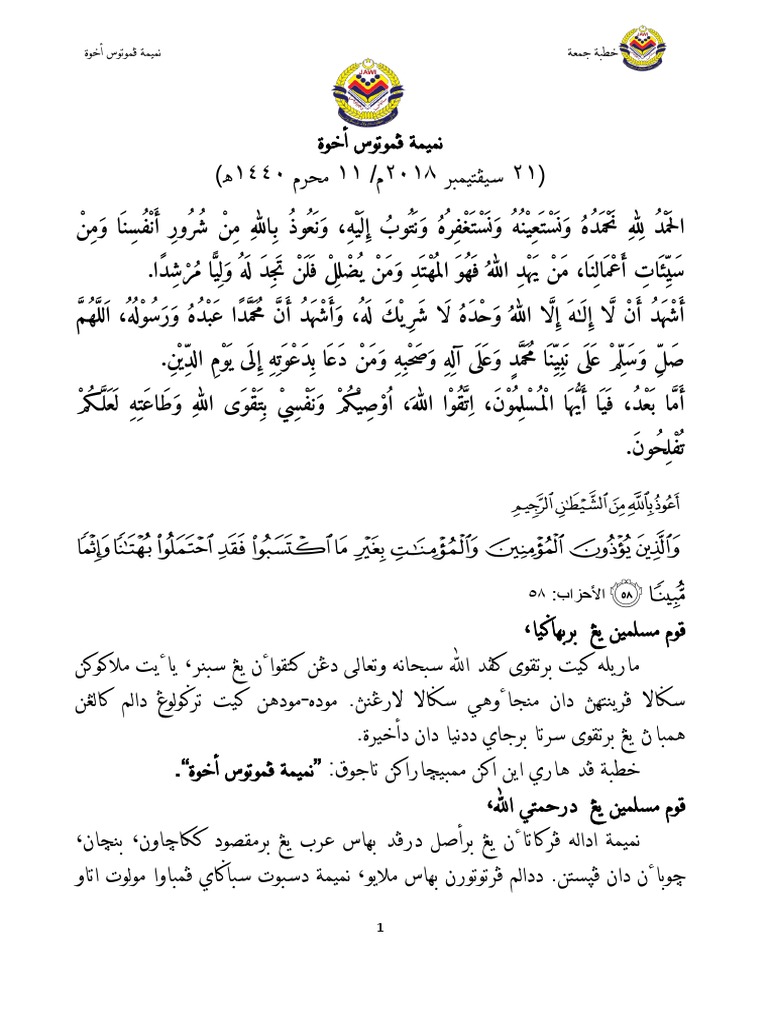 خطبة جمعة
نميمة ڤموتوس أخوة
JAWI
نميمة ڤموتوس أخوة
(٢١ سيڤتيمبر ٢٠١٨م/ ١١ محرم ١٤٤٠هـ)
الْحَمْدُ لِلَّهِ نَحْمَدُهُ وَنَسْتَعِيْنُهُ وَنَسْتَغْفِرُهُ وَنَتُوبُ إِلَيْهِ، وَنَعُوذُ بِاللهِ مِنْ شُرُورِ أَنْفُسِنَا وَمِنْ
سَيِّئَاتِ أَعْمَالِنَا، مَنْ يَهْدِ اللهُ فَهُوَ الْمُهْتَدِ وَمَنْ يُضْلِلْ فَلَنْ تَجِدَ لَهُ وَلِيًّا مُرْشِدًا.
أَشْهَدُ أَنْ لَّا إِلَـٰهَ إِلَّا اللهُ وَحْدَهُ لَا شَرِيْكَ لَهُ، وَأَشْهَدُ أَنَّ مُحَمَّدًا عَبْدُهُ وَرَسُوْلُهُ، اَللَّهُمَّ
صَلِّ وَسَلِّمْ عَلَى نَبِيِّنَا مُحَمَّدٍ وَعَلَى آلِهِ وَصَحْبِهِ وَمَنْ دَعَا بِدَعْوَتِهِ إِلَى يَوْمِ الدِّيْنِ.
أَمَّا بَعْدُ، فَيَا أَيُّهَا الْمُسْلِمُوْنَ، اِتَّقُوْا اللهَ، اُوْصِيْكُمْ وَنَفْسِيْ بِتَقْوَى اللهِ وَطَاعَتِهِ لَعَلَّكُمْ
تُفْلِحُونَ.
أَعُوذُ بِٱللَّهِ مِنَ ٱلشَّيْطَٰنِ ٱلرَّجِيمِ
وَٱلَّذِينَ يُؤْذُونَ ٱلْمُؤْمِنِينَ وَٱلْمُؤْمِنَٰتِ بِغَيْرِ مَا ٱكْتَسَبُوا۟ فَقَدِ ٱحْتَمَلُوا۟ بُهْتَٰنًا وَإِثْمًا
مُّبِينًا ٥٨ الأحزاب: ٥٨
قوم مسلمين يڠ بربهاݢيا،
ماريله كيت برتقوى كڤد الله سبحانه وتعالى دڠن كتقواءن يڠ سبنر، يائيت ملاكوكن
سݢالا ڤرينتهڽ دان منجاءوهي سݢالا لارڠنڽ. موده-مودهن كيت ترݢولوڠ دالم كالڠن
همباڽ يڠ برتقوى سرتا برجاي ددنيا دان دأخيرة.
خطبة ڤد هاري اين اكن ممبيچاراكن تاجوق: "نميمة ڤموتوس أخوة".
قوم مسلمين يڠ درحمتي الله،
نميمة اداله ڤركاتاءن يڠ برأصل درڤد بهاس عرب يڠ برمقصود ككاچاون، بنچان،
چوباءن دان ڤڤستن. ددالم ڤرتوتورن بهاس ملايو، نميمة دسبوت سباݢاي ڤمباوا مولوت اتاو
1